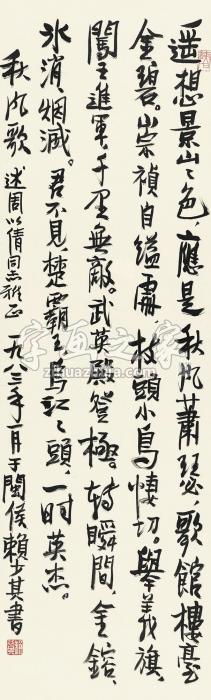 遥想景山々色，應是秋风蕭瑟。歌館樓臺
金碧。崇禎自縊處，枝頭小鳥悽切。舉義旗，
闖王進軍，千里無敵。武英殿登極。轉瞬間，金鎔、
冰消、烟滅。君不見楚霸王烏江々頭，一時英杰。
秋风歌 述周以倩同志雅正 一九八三年一月于閩侯賴少其書
字画之家